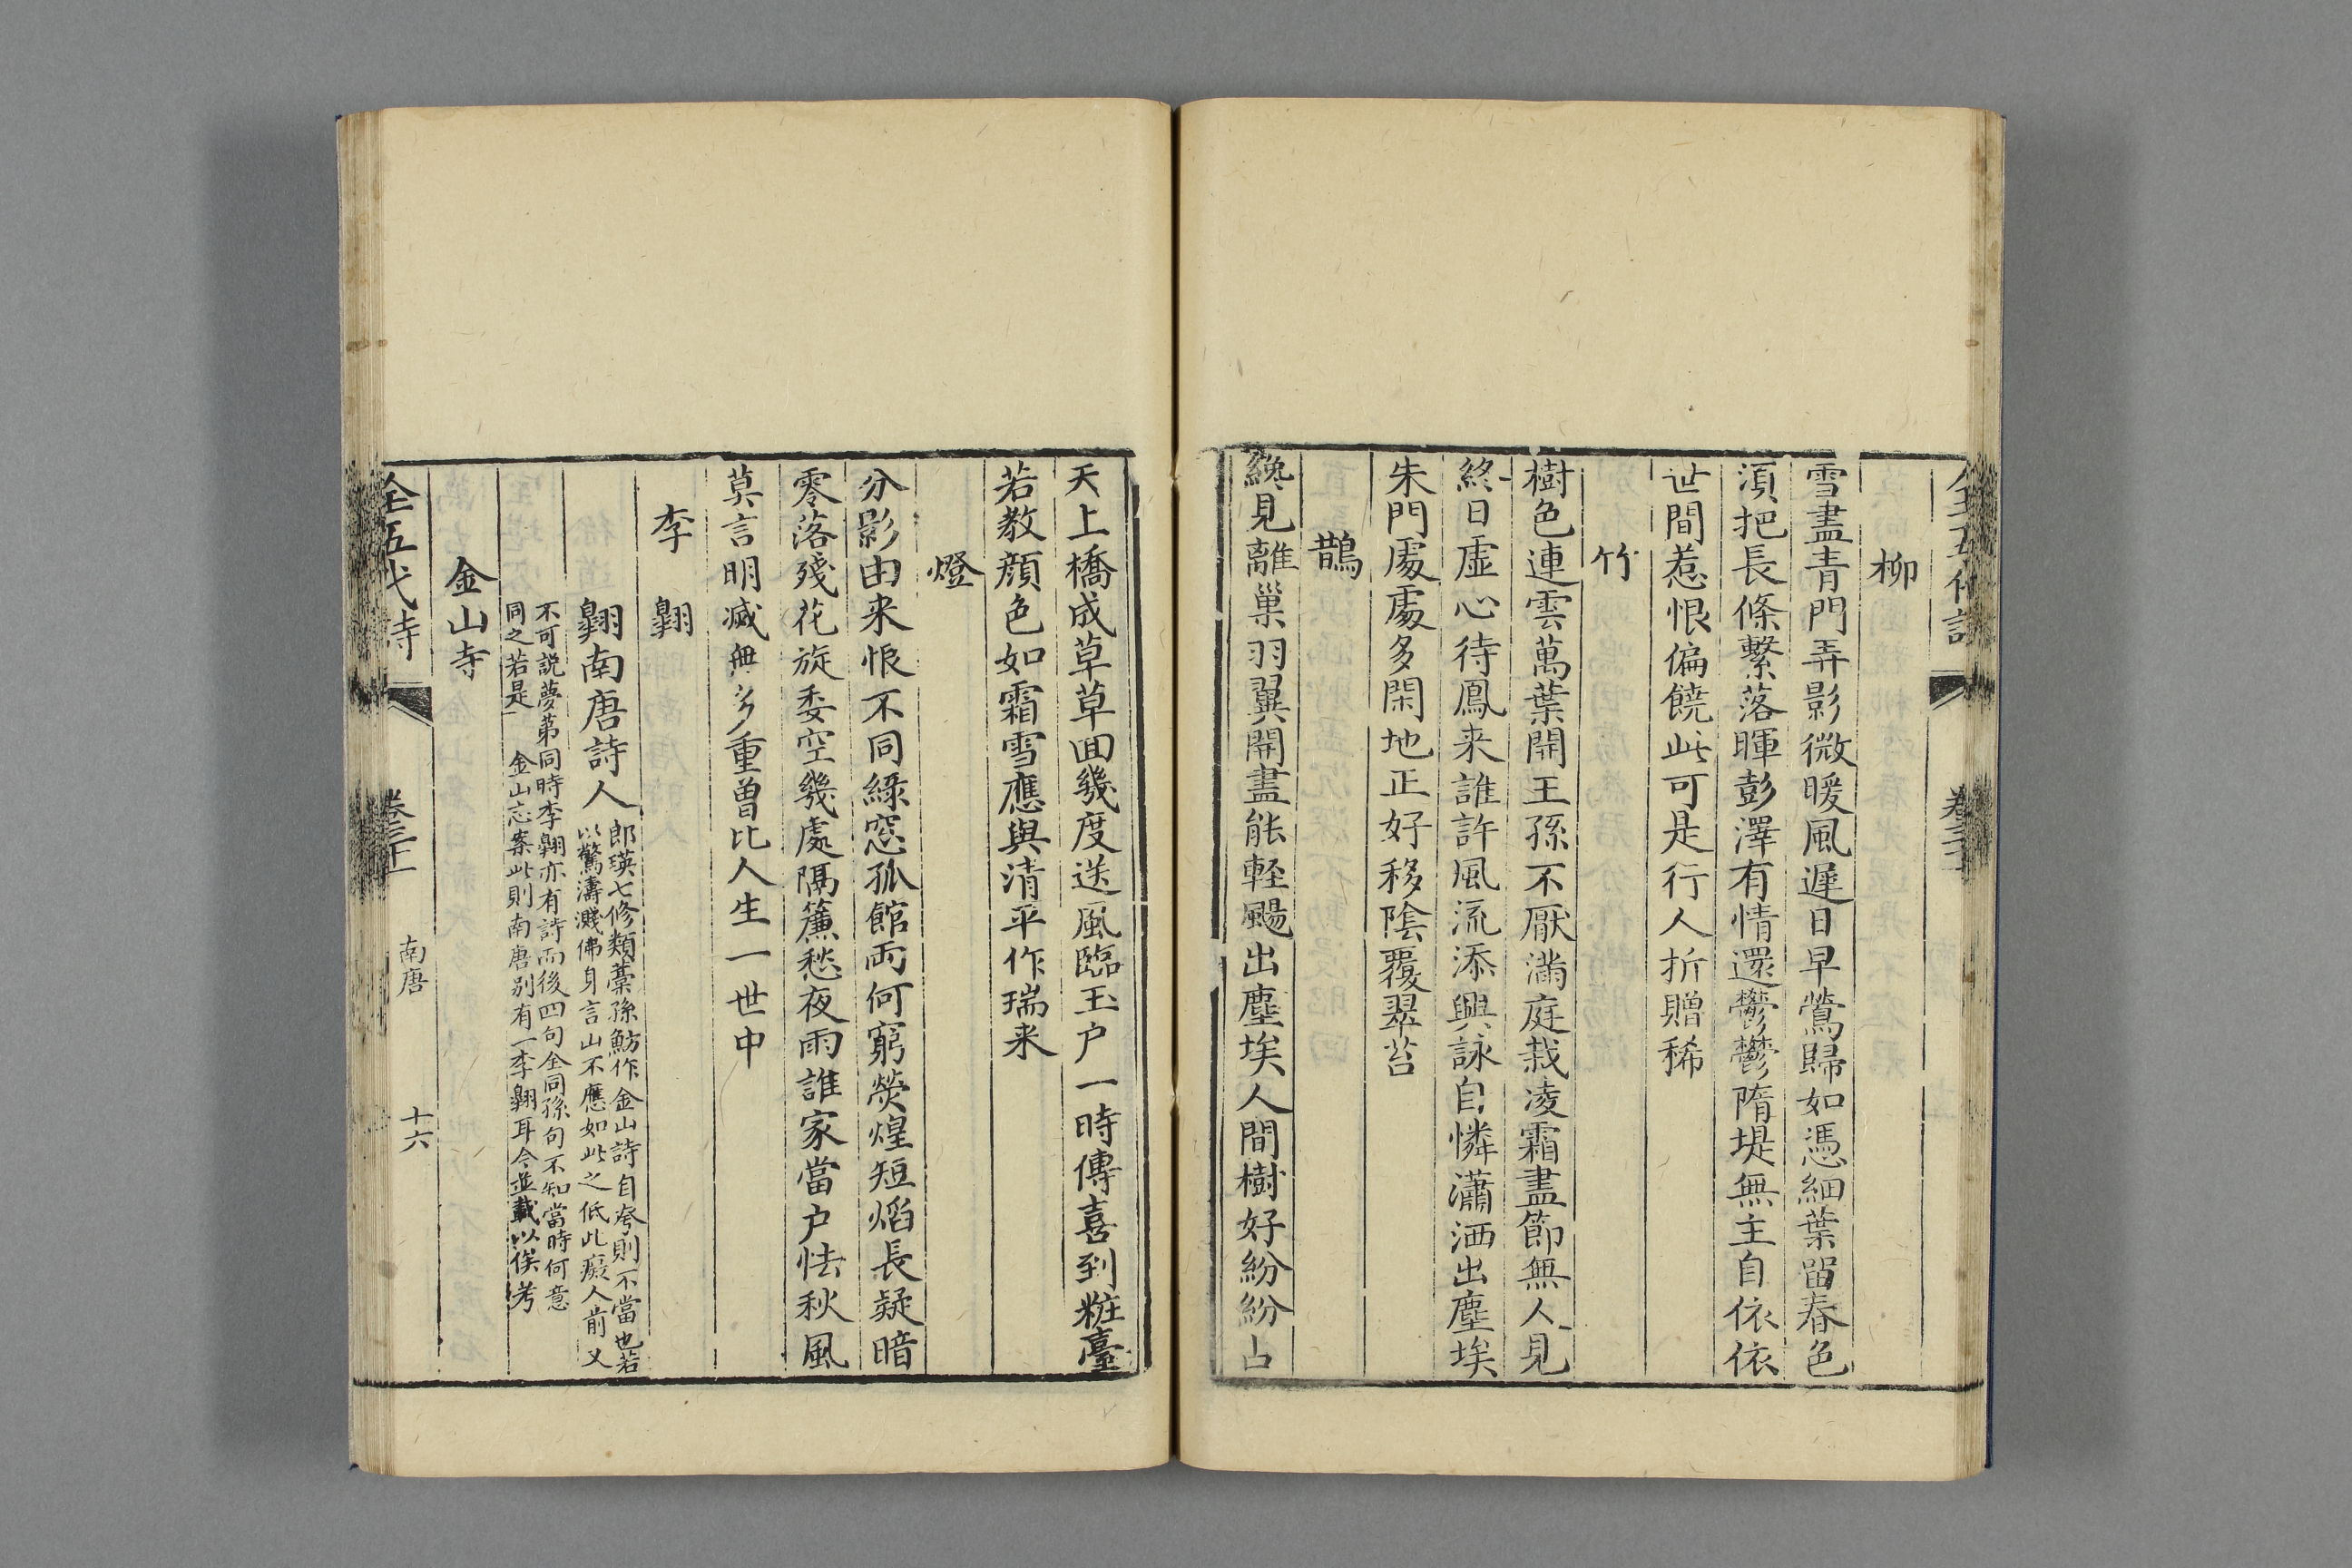 柳
雪盡青門弄影微暖風遲日早鶯歸如憑細葉留春色
須把長條繫落暉彭澤有情還鬱鬱隋堤無主自依依
世間惹恨偏饒此可是行人折贈稀
竹
樹色連雲萬葉開王孫不厭滿庭栽凌霜盡節無人見
終日虛心待鳳来誰許風流添興詠自憐瀟洒出塵埃
朱門處處多閑地正好移陰覆翠苔
鵲
纔見離巢羽翼開盡能軽颺出塵埃人間樹好紛紛占
天上橋成草草囬幾度送風臨玉户一時傳喜到粧臺
若教顔色如霜雪應與清平作瑞来
燈
分影由来恨不同綠窓孤館両何窮熒煌短焰長疑暗
零落殘花旋委空幾處隔簾愁夜雨誰家當户怯秋風
莫言明滅無多重曽比人生一世中
李翺
翺南唐詩人郎瑛七修類藁孫魴作金山詩自夸則不當也若
以驚濤濺佛身言山不應如此之低此癡人前又
不可説夢第同時李翺亦有詩而後四句全同孫句不知當時何意
同之若是 金山志案此則南唐别有一李翺耳今並載以俟考
金山寺
全五代詩 南唐 十六